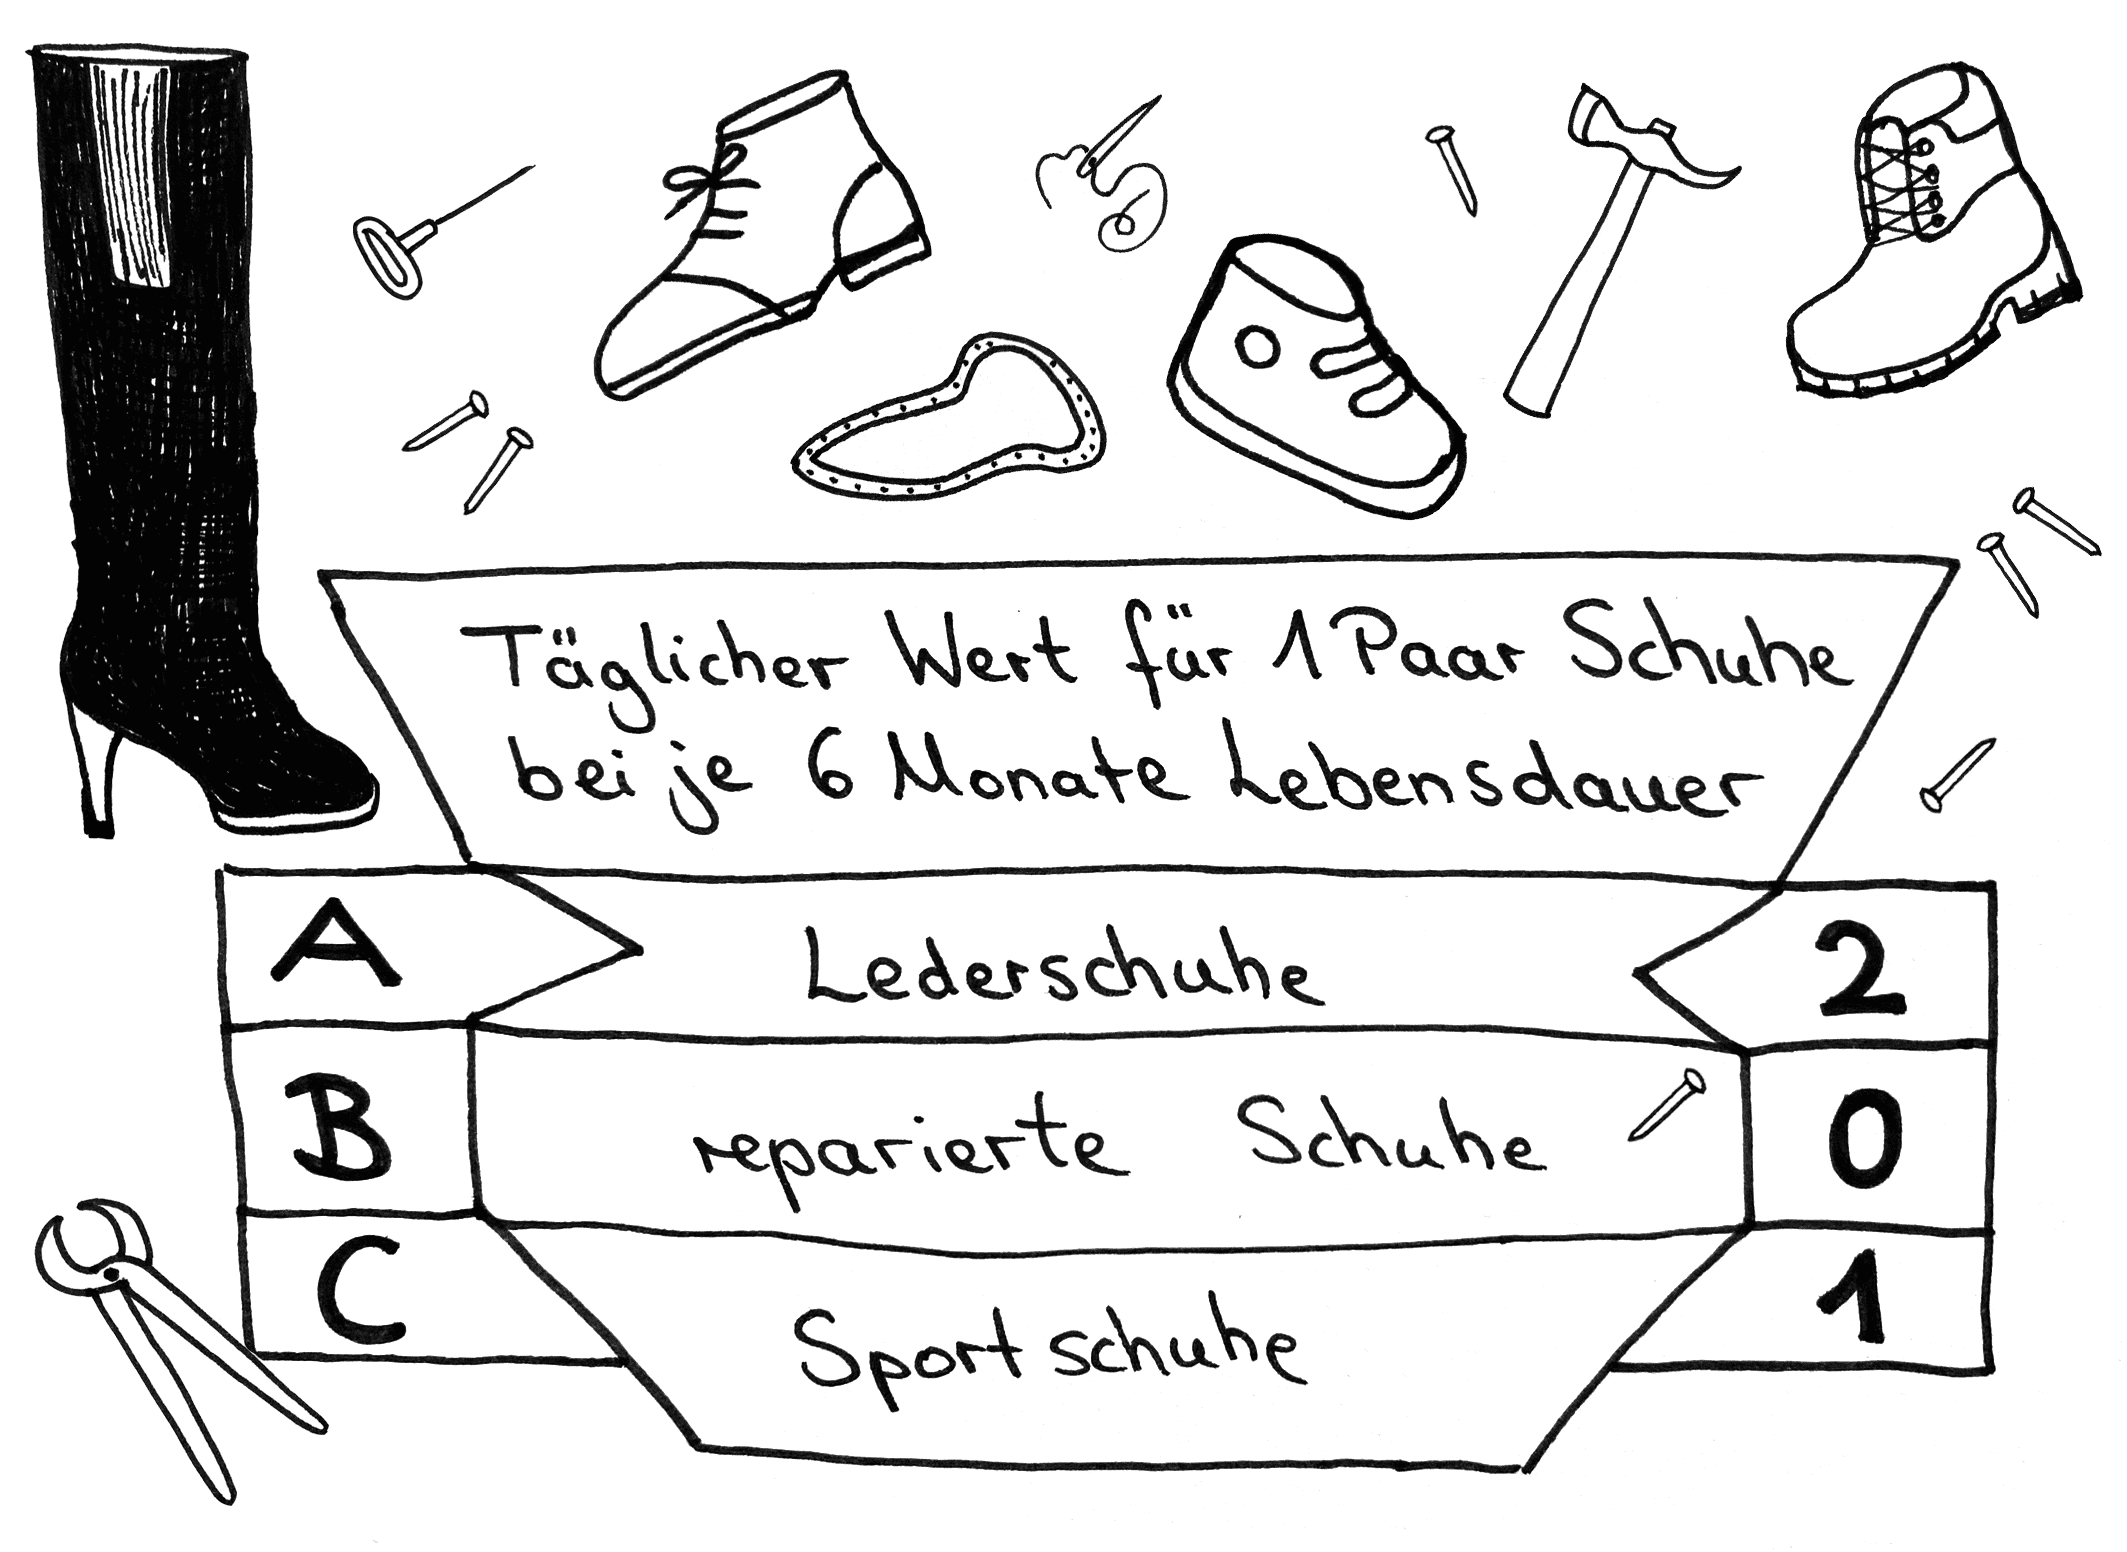 Täglicher Wert für 1 Paar Schuhe
bei je 6 Monate Lebensdauer
A Lederschuhe 2
B reparierte Schuhe 0
C Sportschuhe 1